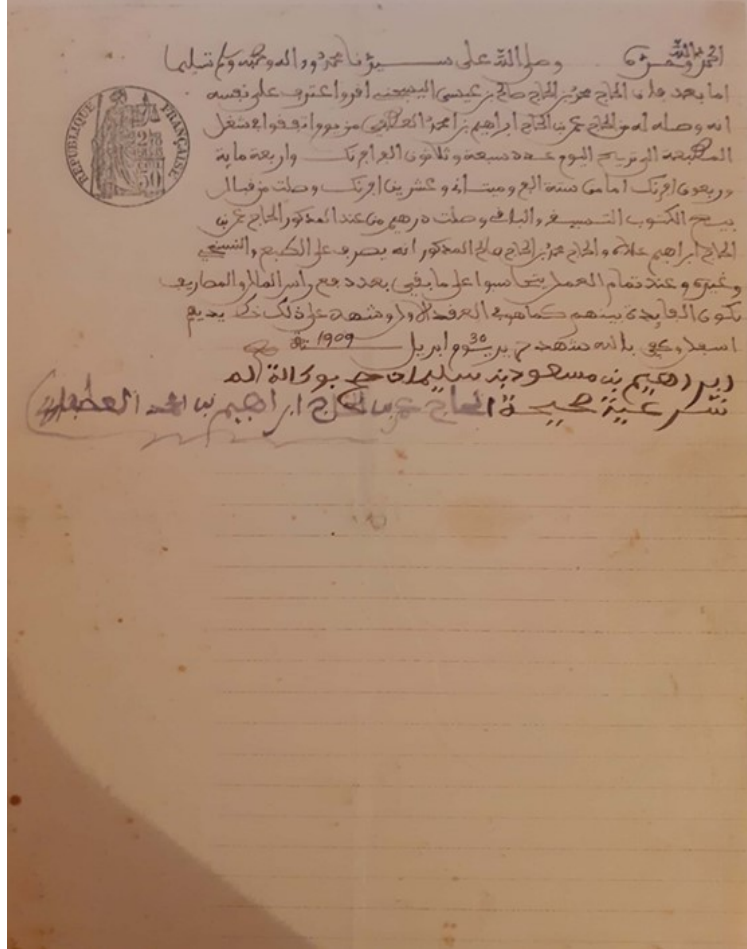 الحمد لله وحده وصلى الله على سيدنا محمد وءاله وصحبه وسلم تسليما
اما بعد فان الحاج محمد بن الحاج صالح بن عيسى اقر واعترف على نفسه
انه وصله من الحاج عمر بن الحاج ابراهيم بن امحمد العطفاوي من يوم اتفقوا فى شغل
المطبعة الى تاريخ اليوم عدده سبعة وثلاثون الف افرنك واربعة ماية
وربعون افرنك امامن ستة الاف وميتان وعشرين افرنك وصلت من قبال
بيع الكتوب والباقى وصلت درهم من عند المذكور الحاج عمر بن
الحاج ابراهيم والحاج محمد بن الحاج صالح المذكور انه يصرف على الطبع
وغيره وعند تمام العمل يتحاسبوا على ما بقى بعد دفع راس المال والمصاريف
تكون الفايدة بينهم كما هو فى العقد الاول وشهد على ذلك
اسفله بانه شهد يوم 30 ابريل سنة 1909
ابراهيم بن مسعود بن سليمان بوكالة له
شرعية صحيحة الحاج عمر بن الحاج ابراهيم بن امحمد العطفاوي
REPUBLIQUE FRANÇAISE
50